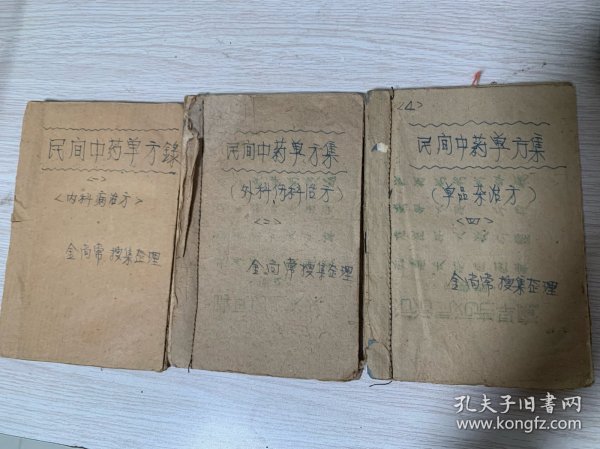 民间中药单方錄
<一>
<内科病治方>
金尚常搜集整理
民间中药单方集
(外科伤科治方)
<二>
金尚常搜集整理
<4>
民间中药单方集
(单品杂治方)
<四>
金尚常搜集整理
孔夫子旧书网
www.kongfz.com